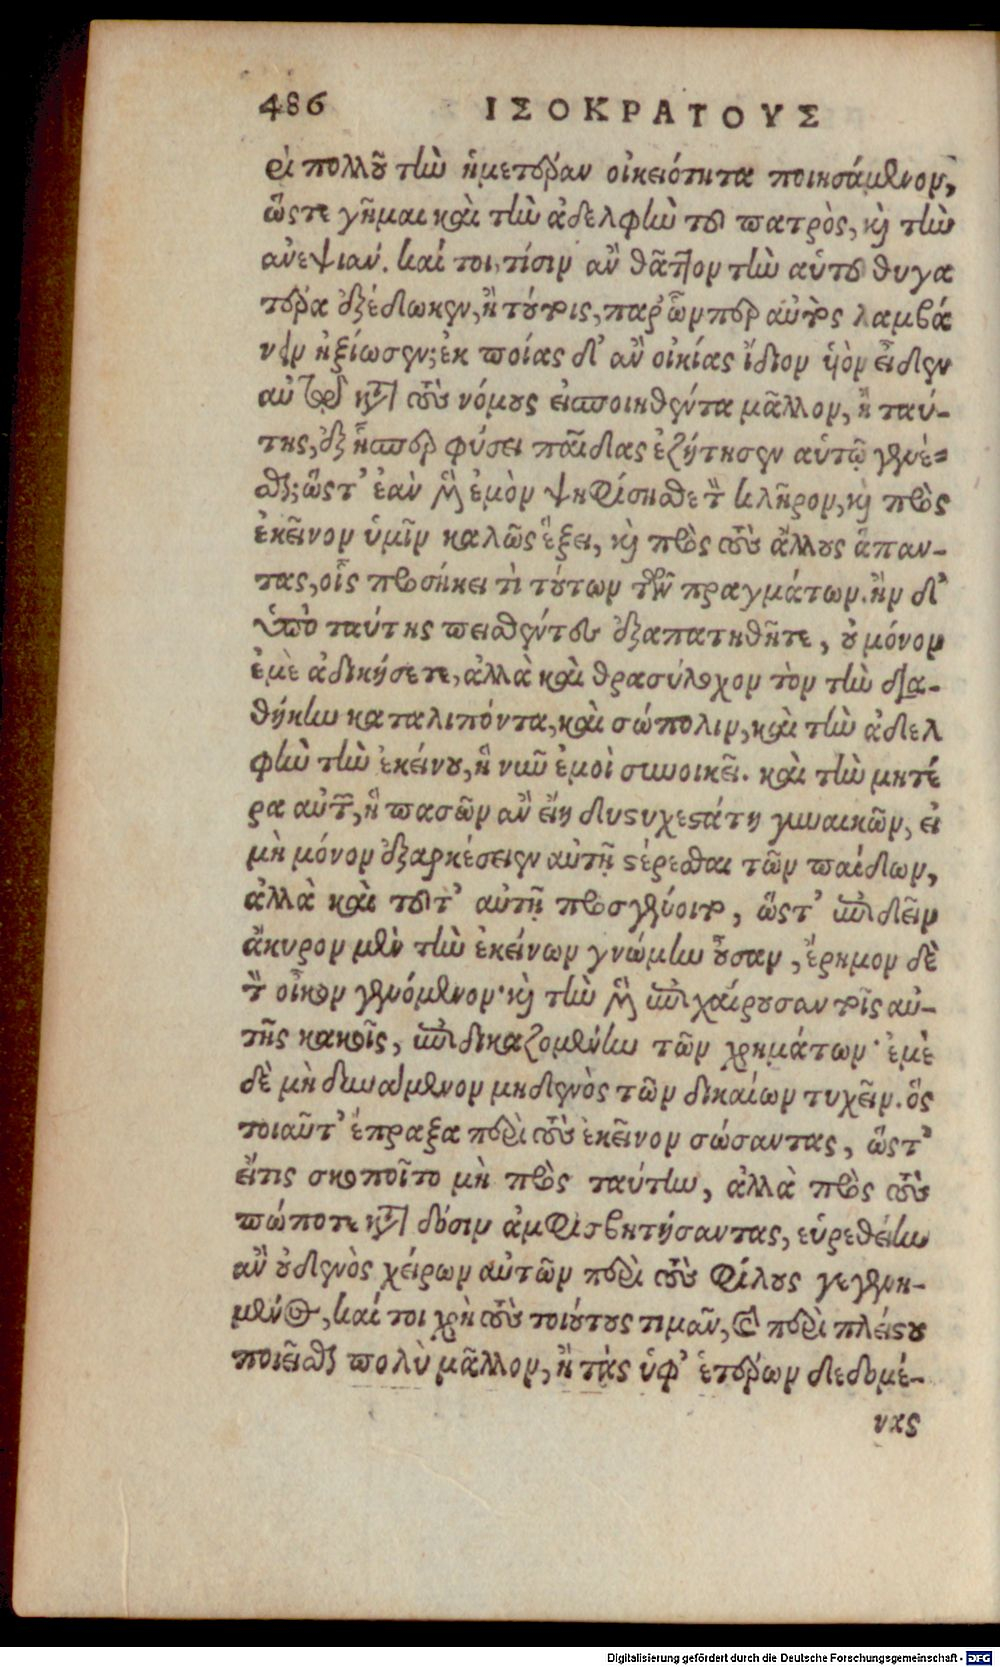 486 ΙΣΟΚΡΑΤΟΥΣ
ρὶ πολλοῦ τὴν ἡμετέραν οἰκειότητα ποιησάμενον,
ὥστε γῆμαι καὶ τὴν ἀδελφὴν τοῦ πατρὸς, καὶ τὴν
ἀνεψιάν. καί τοι, τίσιν ἂν θᾶττον τὴν αὑτοῦ θυγα
τέρα ἐξέδωκεν, ἢ τούτοις, παρ' ὧνπερ αὐτὸς λαμβά
νειν ἠξίωσεν; ἐκ ποίας δ' ἂν οἰκίας ἴδιον υἱὸν εἶδεν
αὐτῷ κατὰ τοὺς νόμους εἰσποιηθέντα μᾶλλον, ἢ ταύ-
της, ἐξ ἧσπερ φύσει παῖδας ἐζήτησεν αὑτῷ γενέ-
σθαι; ὥστ' ἐὰν μὲν ἐμὸν ψηφίσησθε τὸν κλῆρον, καὶ πρὸς
ἐκεῖνον ὑμῖν καλῶς ἕξει, καὶ πρὸς τοὺς ἄλλους ἅπαν-
τας, οἷς προσήκει τὶ τούτων τῶν πραγμάτων. ἢν δ'
ὑπὸ ταύτης πεισθέντες ἐξαπατηθῆτε, οὐ μόνον
ἐμὲ ἀδικήσετε, ἀλλὰ καὶ θρασύλοχον τὸν τὴν δια-
θήκην καταλιπόντα, καὶ σώπολιν, καὶ τὴν ἀδελ
φὴν τὴν ἐκείνου, ἣ νῦν ἐμοὶ συνοικεῖ. καὶ τὴν μητέ
ρα αὐτῶν, ἣ πασῶν ἂν εἴη δυστυχεστάτη γυναικῶν, εἰ
μὴ μόνον ἐξαρκέσειεν αὐτῇ στέρεσθαι τῶν παίδων,
ἀλλὰ καὶ τοῦτ' αὐτῇ προσγένοιτο, ὥστ' ἐπιδεῖν
ἄκυρον μὲν τὴν ἐκείνων γνώμην οὖσαν, ἔρημον δὲ
τὸν οἶκον γενόμενον· καὶ τὴν μὲν ἐπιχαίρουσαν τοῖς αὐ-
τῆς κακοῖς, ἐπιδικαζομένην τῶν χρημάτων· ἐμὲ
δὲ μὴ δυνάμενον μηδενὸς τῶν δικαίων τυχεῖν. ὃς
τοιαῦτ' ἔπραξα περὶ τοὺς ἐκεῖνον σώσαντας, ὥστ'
εἴτις σκοποῖτο μὴ πρὸς ταύτην, ἀλλὰ πρὸς τοὺς
πώποτε κατὰ δόσιν ἀμφισβητήσαντας, εὑρεθείην
ἂν οὐδενὸς χείρων αὐτῶν περὶ τοὺς φίλους γεγενη-
μένος, καί τοι χρὴ τοὺς τοιούτους τιμᾶν, καὶ περὶ πλείστου
ποιεῖσθαι πολὺ μᾶλλον, ἢ τὰς ὑφ' ἑτέρων δεδομέ-
νας
Digitalisierung gefördert durch die Deutsche Forschungsgemeinschaft - DFG